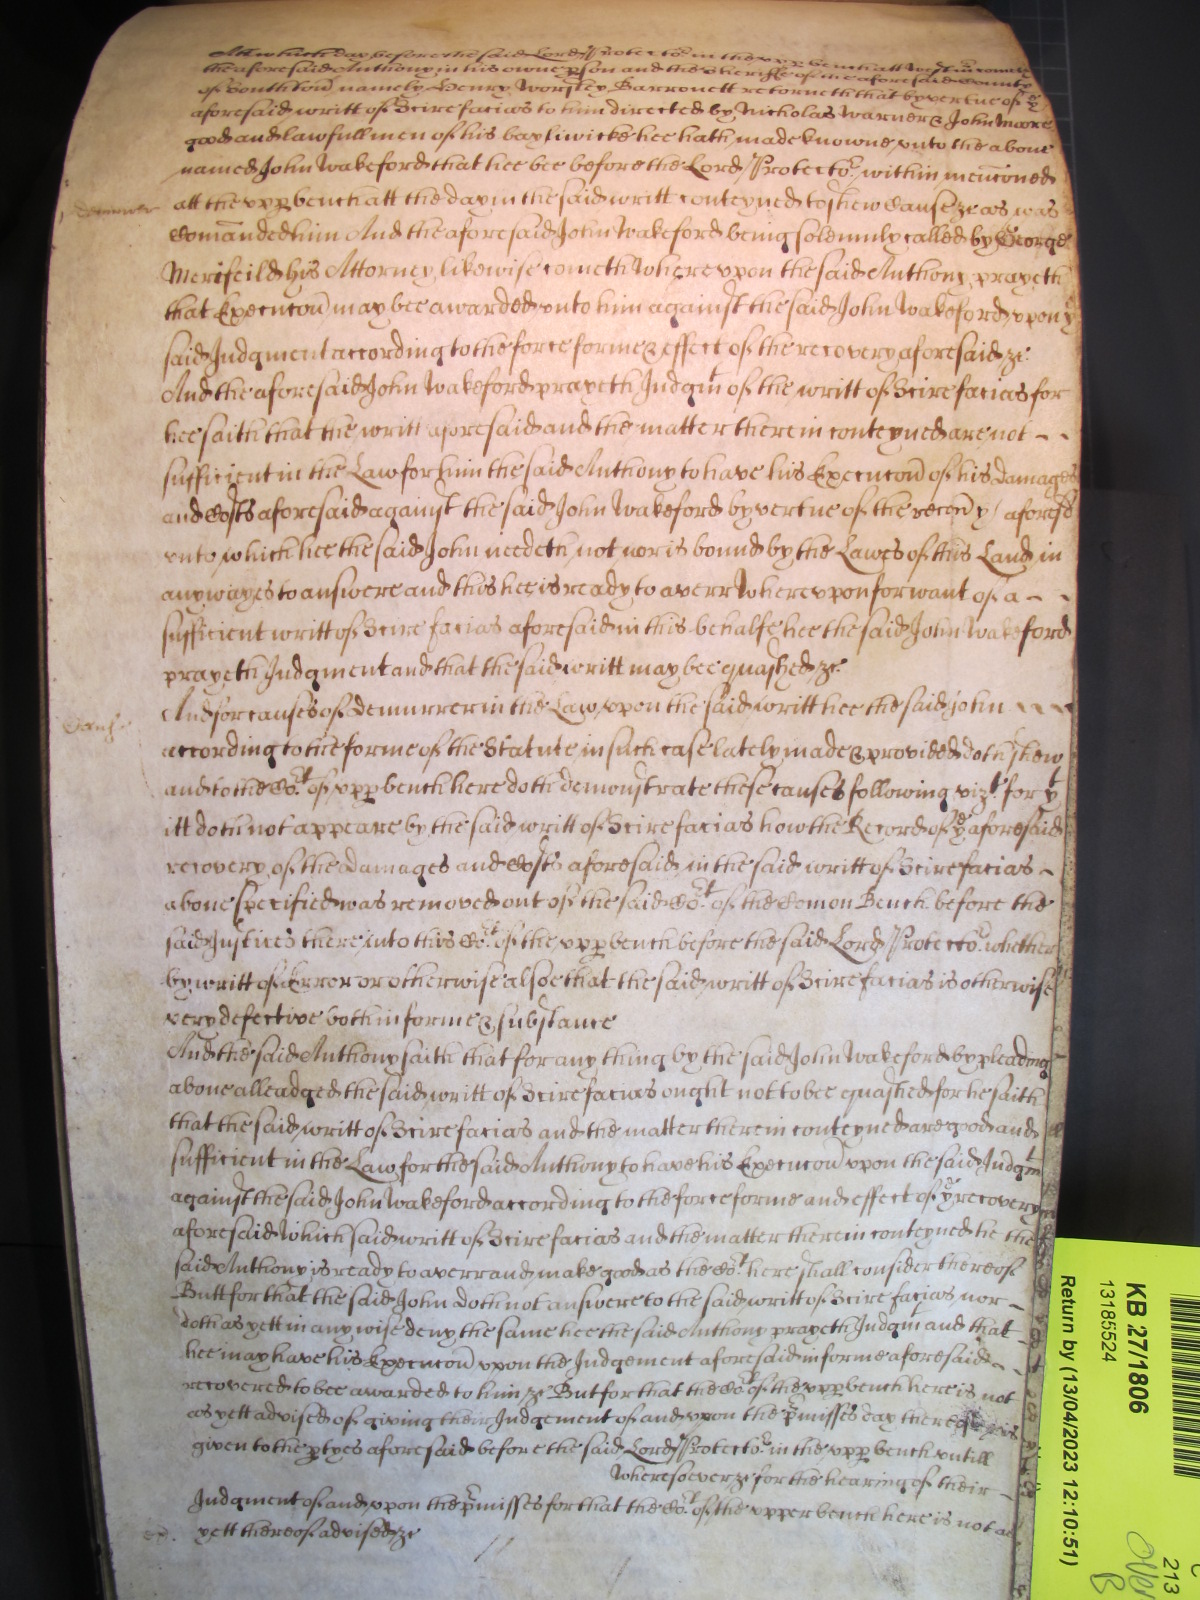 Att which day before the said Lord Protector in the upp bench att Westm cometh
the aforesaid Anthony in his owne pson and the Sheriffe of the aforesaid County
of Southton namely Henry Worsley Barronett retorneth that by vertue of ye
aforesaid writt of Scire facias to him directed by Nicholas Warner & John Moore
good and lawfull men of his bayliwicke hee hath made knowne unto the above
named John Wakeford that hee bee before the Lord Protector within menconed
demurrer
att the upp bench att the day in the said writt conteyned to shew Cause &c as was
Comanded him And the aforesaid John Wakeford being solemnly called by George
Merifeild his Attorney likewise cometh Whereupon the said Anthony prayeth
that Execucon may bee awarded unto him against the said John Wakeford upon ye
said Judgment according to the force forme & effect of the recovery aforesaid &c
And the aforesaid John Wakeford prayeth Judgmt of the writt of Scire facias for
hee saith that the writt aforesaid and the matter therein conteyned are not - -
sufficient in the Law for him the said Anthony to have his Execucon of his damages
and Costs aforesaid against the said John Wakeford by vertue of the recovy aforesd
unto which hee the said John needeth not nor is bound by the Lawes of this Land in
any wayes to answere and this hee is ready to averr Whereupon for want of a - -
sufficient writt of Scire facias aforesaid in this behalfe hee the said John Wakeford
prayeth Judgment and that the said writt may bee quashed &c
And for causes of demurrer in the Law upon the said writt hee the said John - - -
Caus
according to the forme of the Statute in such case lately made & provided doth shew
and to the Cot of upp bench here doth demonstrate these causes following vizt for yt
itt doth not appeare by the said writt of Scire facias how the Record of ye aforesaid
recovery of the damages and Costs aforesaid in the said writt of Scire facias -
above specified was removed out of the said Cot of the Comon Bench before the
said Justices there into this Cot of the upp bench before the said Lord Protector whether
by writt of Error or otherwise alsoe that the said writt of Scire facias is otherwise
very defective both in forme & substance
And the said Anthony saith that for any thing by the said John Wakeford by pleading
above alleadged the said writt of Scire facias ought not to bee quashed for he saith
that the said writt of Scire facias and the matter therein conteyned are good and
sufficient in the Law for the said Anthony to have his Execucon upon the said Judgmt
against the said John Wakeford according to the force forme and effect of ye recovery
aforesaid Which said writt of Scire facias and the matter therein conteyned he the
said Anthony is ready to averr and make good as the Cot here shall consider thereof
Butt for that the said John doth not answere to the said writt of Scire facias nor -
doth as yett in any wise deny the same hee the said Anthony prayeth Judgmt and that
hee may have his Execucon upon the Judgement aforesaid in forme aforesaid - -
recovered to bee awarded to him &c But for that the Cot of the upp bench here is not
as yett advised of giving their Judgement of and upon the pmisses day thereof is
given to the ptyes aforesaid before the said Lord Protector in the upp bench untill
Wheresoever &c for the hearing of their -
Judgment of and upon the pmisses for that the Cot of the upper bench here is not as
yett thereof advised &c
KB 27/1806
13185524
Return by (13/04/2023 12:10:51)
213
Over
B